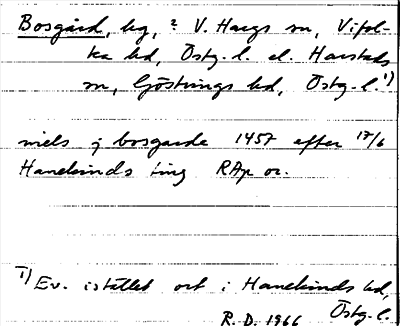 Bosgård, by, ? V. Hargs sn, Vifol-
ka hd, Östg. l. el. Harstads
sn, Göstrings hd, Östg. l. 1)
niels j bosgarde 1457 efter 17/6
Hanekinds ting RAp or.
1) Ev. istället ort i Hanekinds hd,
Östg. l.
R. D. 1966